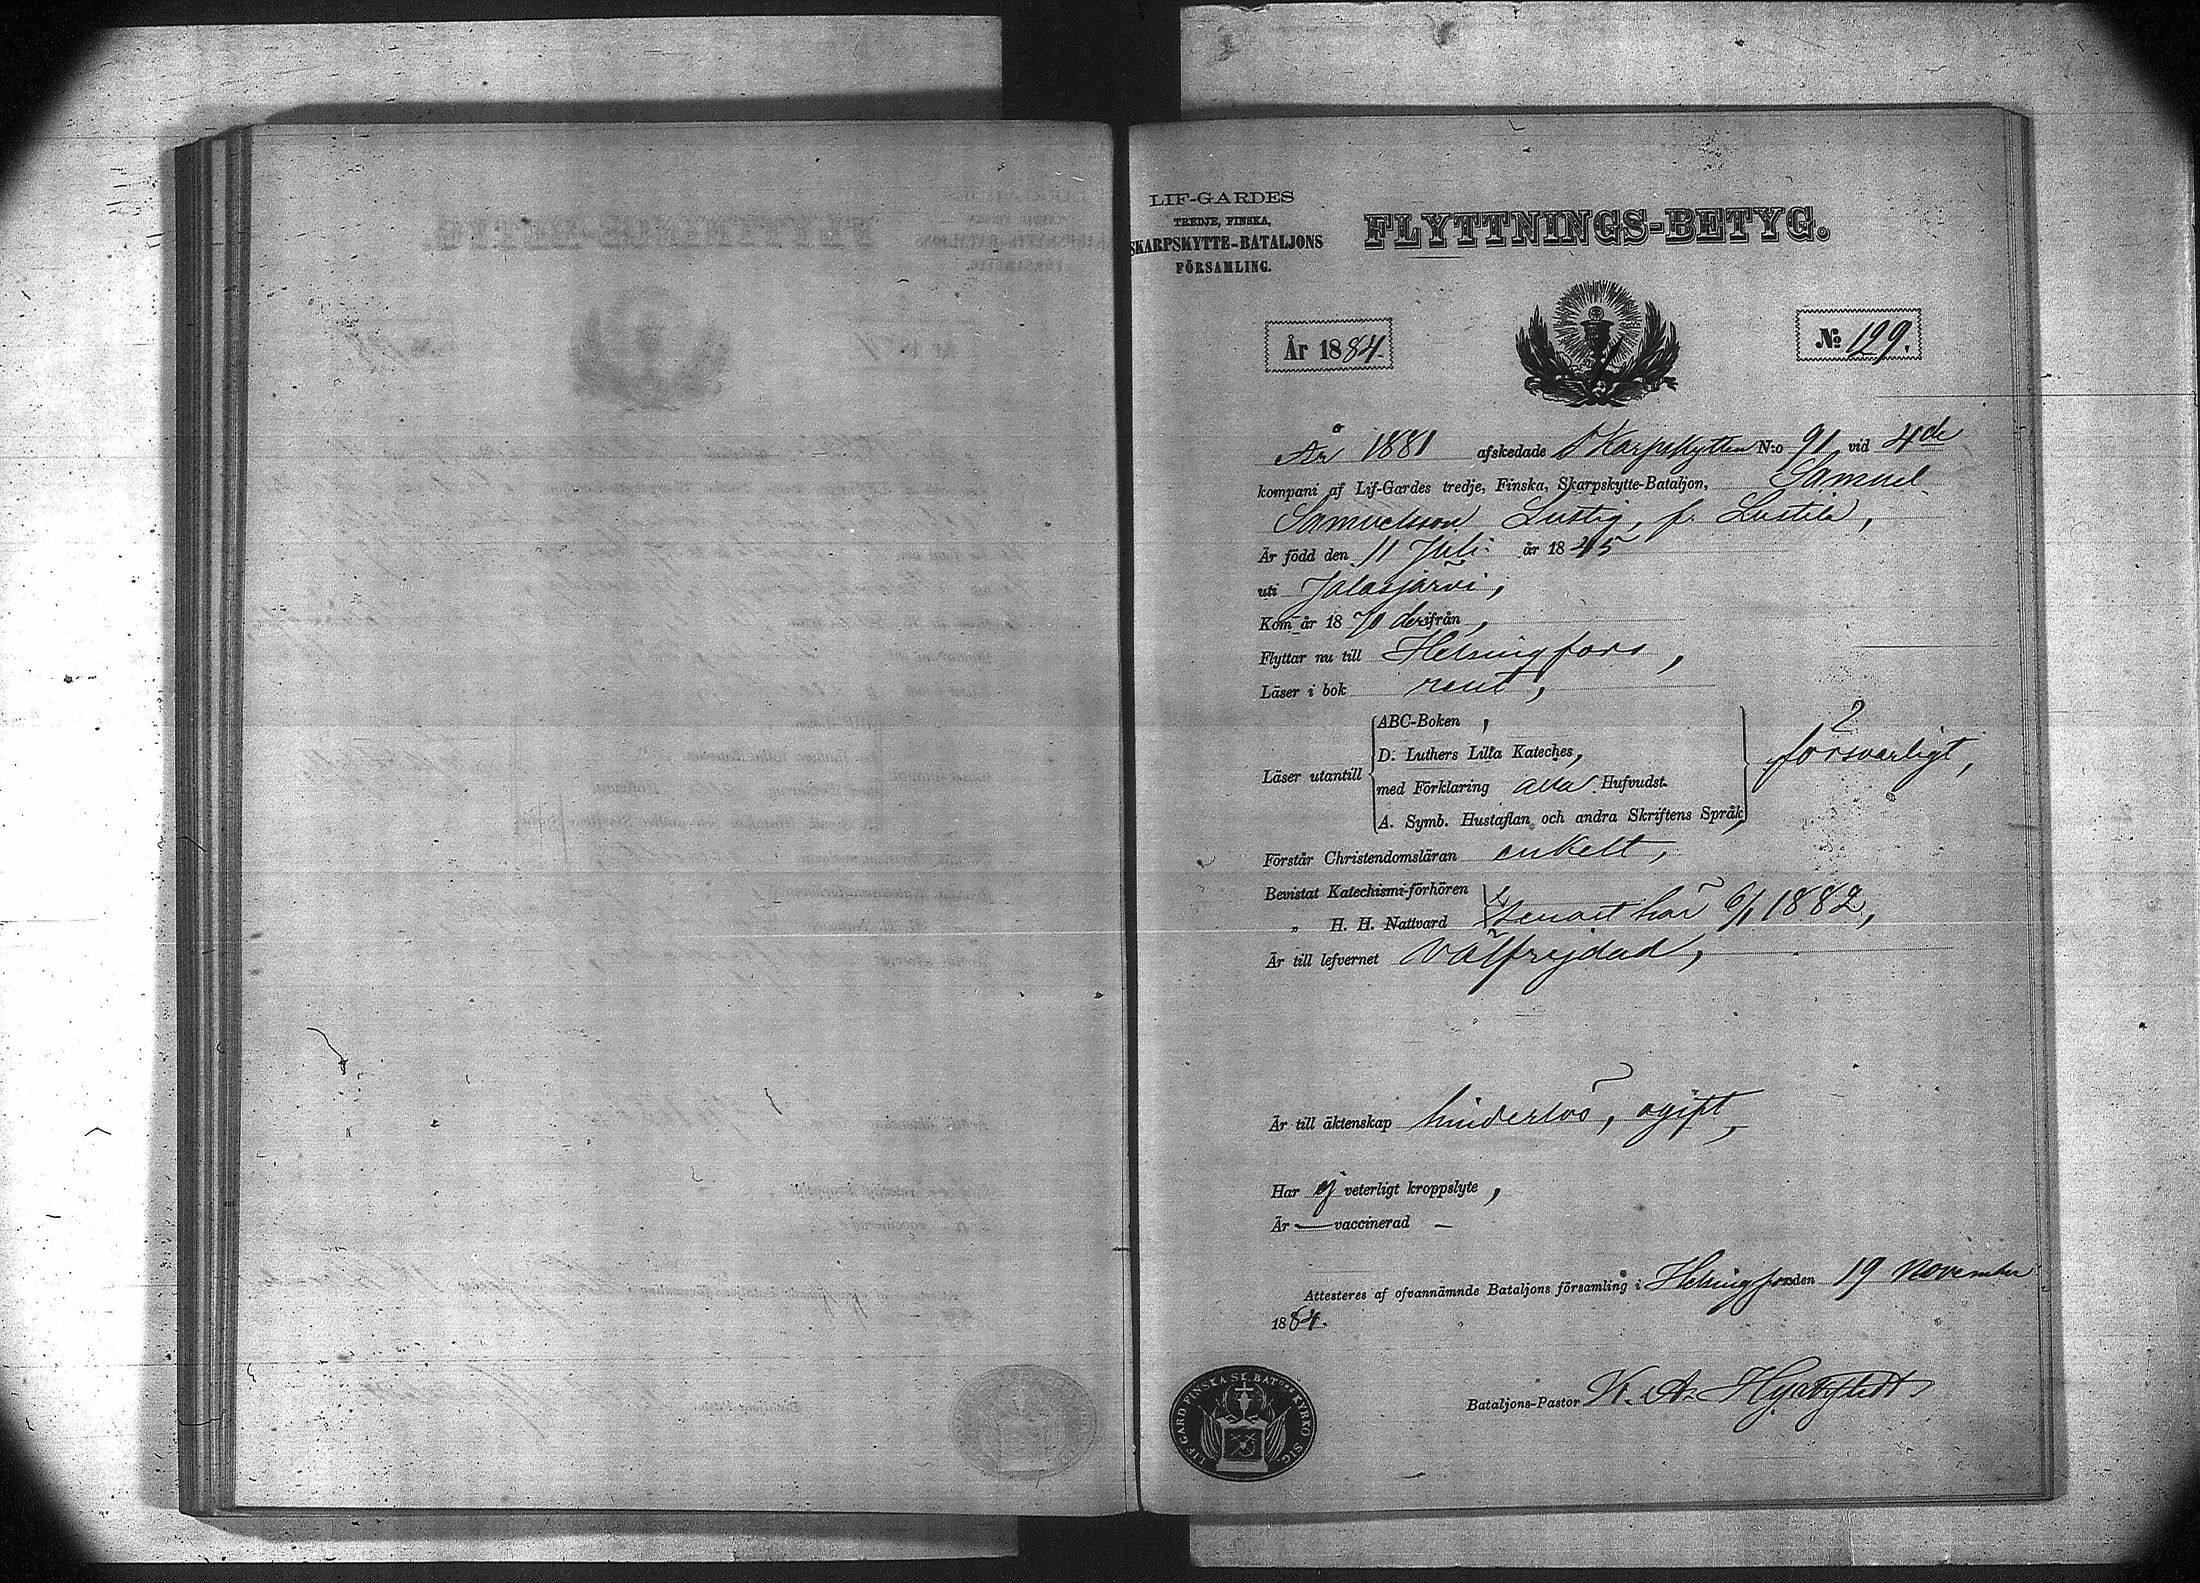 LIF-GARDES
TREDJE, FINSKA,
SKARPSKYTTE-BATALJONS
FÖRSAMLING.
FLYTTNINGS-BETYG.
År 1884.
№ 129.
År 1881 afskedade Skarpskytten N:o 91 vid 4de
kompani af Lif-Gardes tredje, Finska, Skarpskytte-Bataljon, Samuel
Samuelsson Lustig, f. Lustila,
Är född den 11 Juli år 1845
uti Jalasjärvi,
Kom år 1870 derifrån,
Flyttar nu till Helsingfors,
Läser i bok rent,
Läser utantill
ABC-Boken,
D. Luthers Lilla Kateches,
med Förklaring alla Hufvudst.
A. Symb. Hustaflan och andra Skriftens Språk,
försvarligt,
Förstår Christendomsläran enkelt,
Bevistat Katechismi-förhören
„ H. H. Nattvard senast här 6/1 1882,
Är till lefvernet välfrejdad,
Är till äktenskap hinderlös, ogift,
Har ej veterligt kroppslyte,
Är — vaccinerad —
Attesteres af ofvannämnde Bataljons församling i Helsingfors den 19 November
1884.
Bataljons-Pastor K. A.
LIF GARD FINSKA SK. BAT:NS KYRKO SIG.